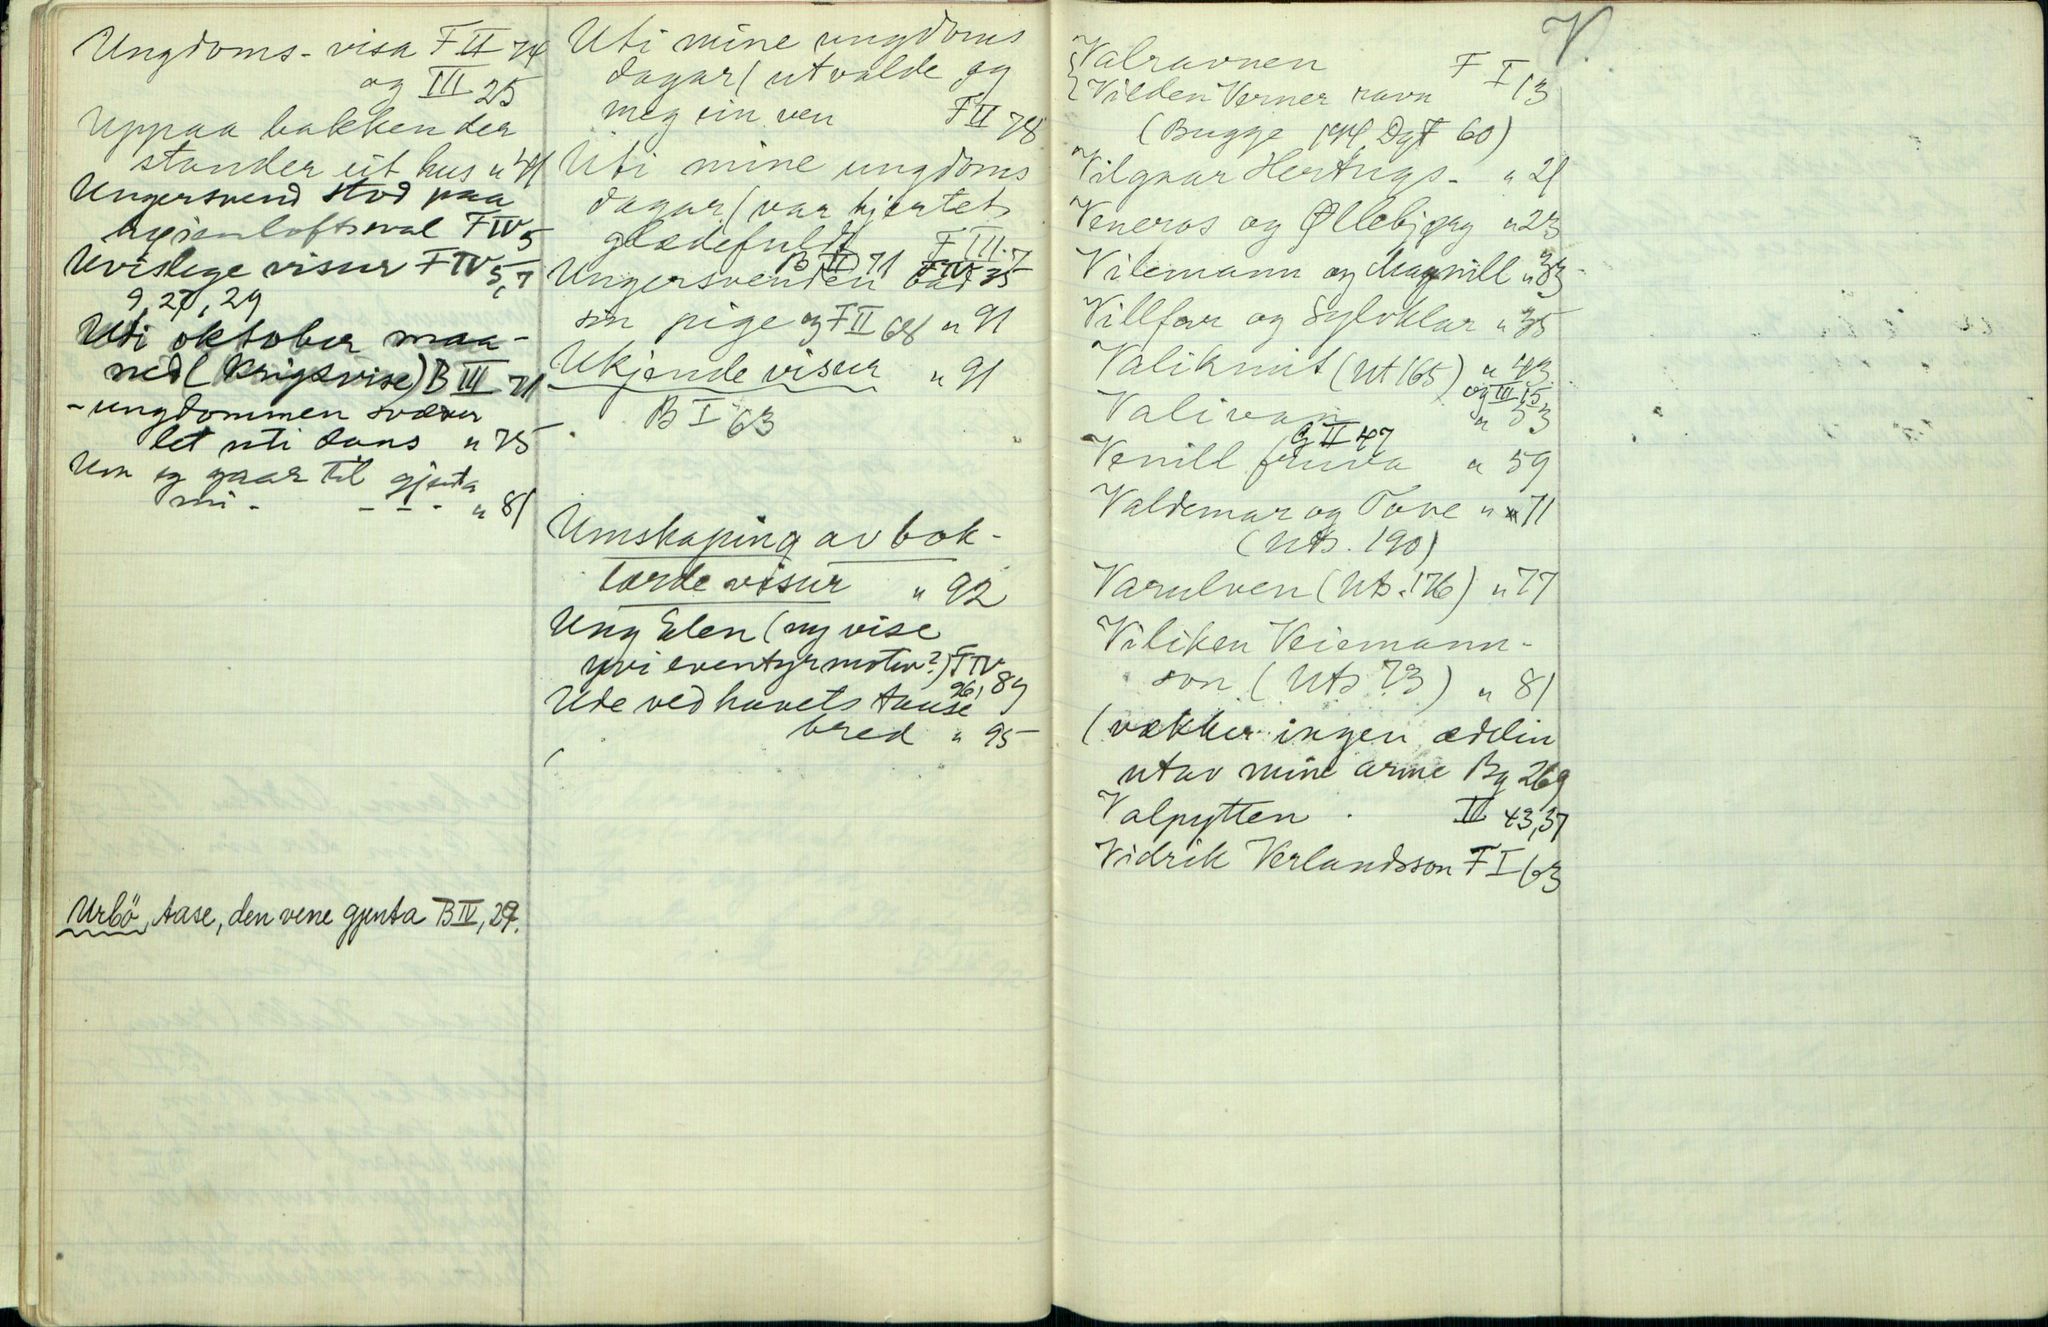 Ungdoms-visa F II 74
og III 25
Uppaa bakken der
stander eit hus " 41
Ungersvend stod paa
loftsval F IV 5
Uvislege visur F IV 5, 7
9, 27, 29
Uti oktober maa-
ned (krigsvise) B III 71
- ungdommen svæver
let uti dans " 75
Um eg gaar til gjenta
mi - - - - " 81
Urbö, Aase, den vene gjenta B IV, 29.
Uti mine ungdoms
dagar / utvalde eg
meg ein ven F II 78
Uti mine ungdoms
dagar / var hjertet
glædefuldt F III. 7
B III 71 F IV 35
Ungersvenden bad
sin pige og F II 68 " 91
Ukjende visur " 91
B I 63
Umskaping av bok-
lærde visur " 92
Ung Elen (ny vise
yvi eventyrmotiv?) F IV 89
96,
Ude ved havets tause
bred " 95
V.
Valravnen F I 13
Vilden Verner ravn
(Bugge DgF 60)
Vilgaar Hertugs- " 21
Veneros og Øllebjørg " 23
Vilemann og Magnill " 33
Villfar og Sylvklar " 35
Valiknut (Ut 165) " 43
og III 15
Valivan " 53
G II 47
Venill fruva " 59
Valdemar og Tove " 71
(Uts. 190)
Varulven (Uts. 176) " 77
Viliken Veiemann-
son (Uts 73) " 81
(vækker ingen ædelin
utav mine arme Bg 269
Valpytten . II 43, 37
Vidrik Verlandsson F I 63